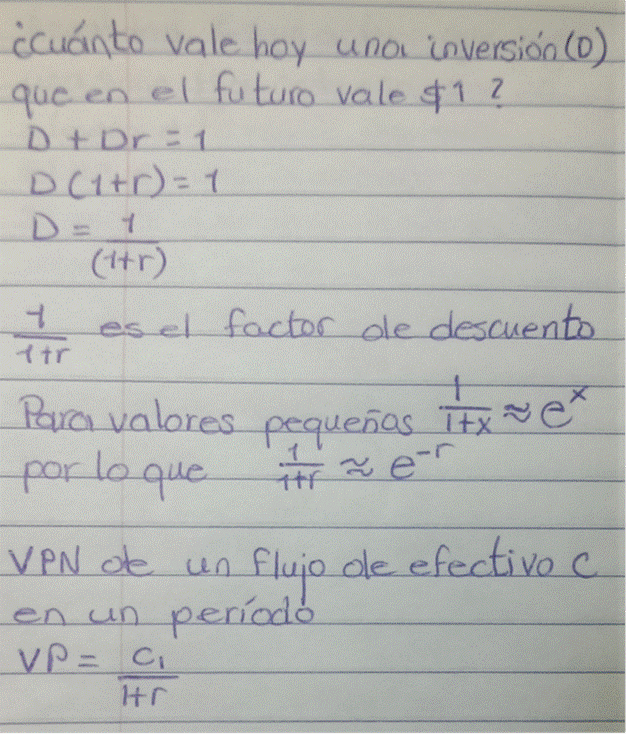 ¿cuánto vale hoy una inversión (D)
que en el futuro vale $1?
D + Dr = 1
D(1+r) = 1
D = 1/(1+r)
1/1+r es el factor de descuento
Para valores pequeñas 1/1+x ≈ e^x
por lo que 1/1+r ≈ e^-r
VPN de un flujo de efectivo C
en un período
VP = C₁/1+r